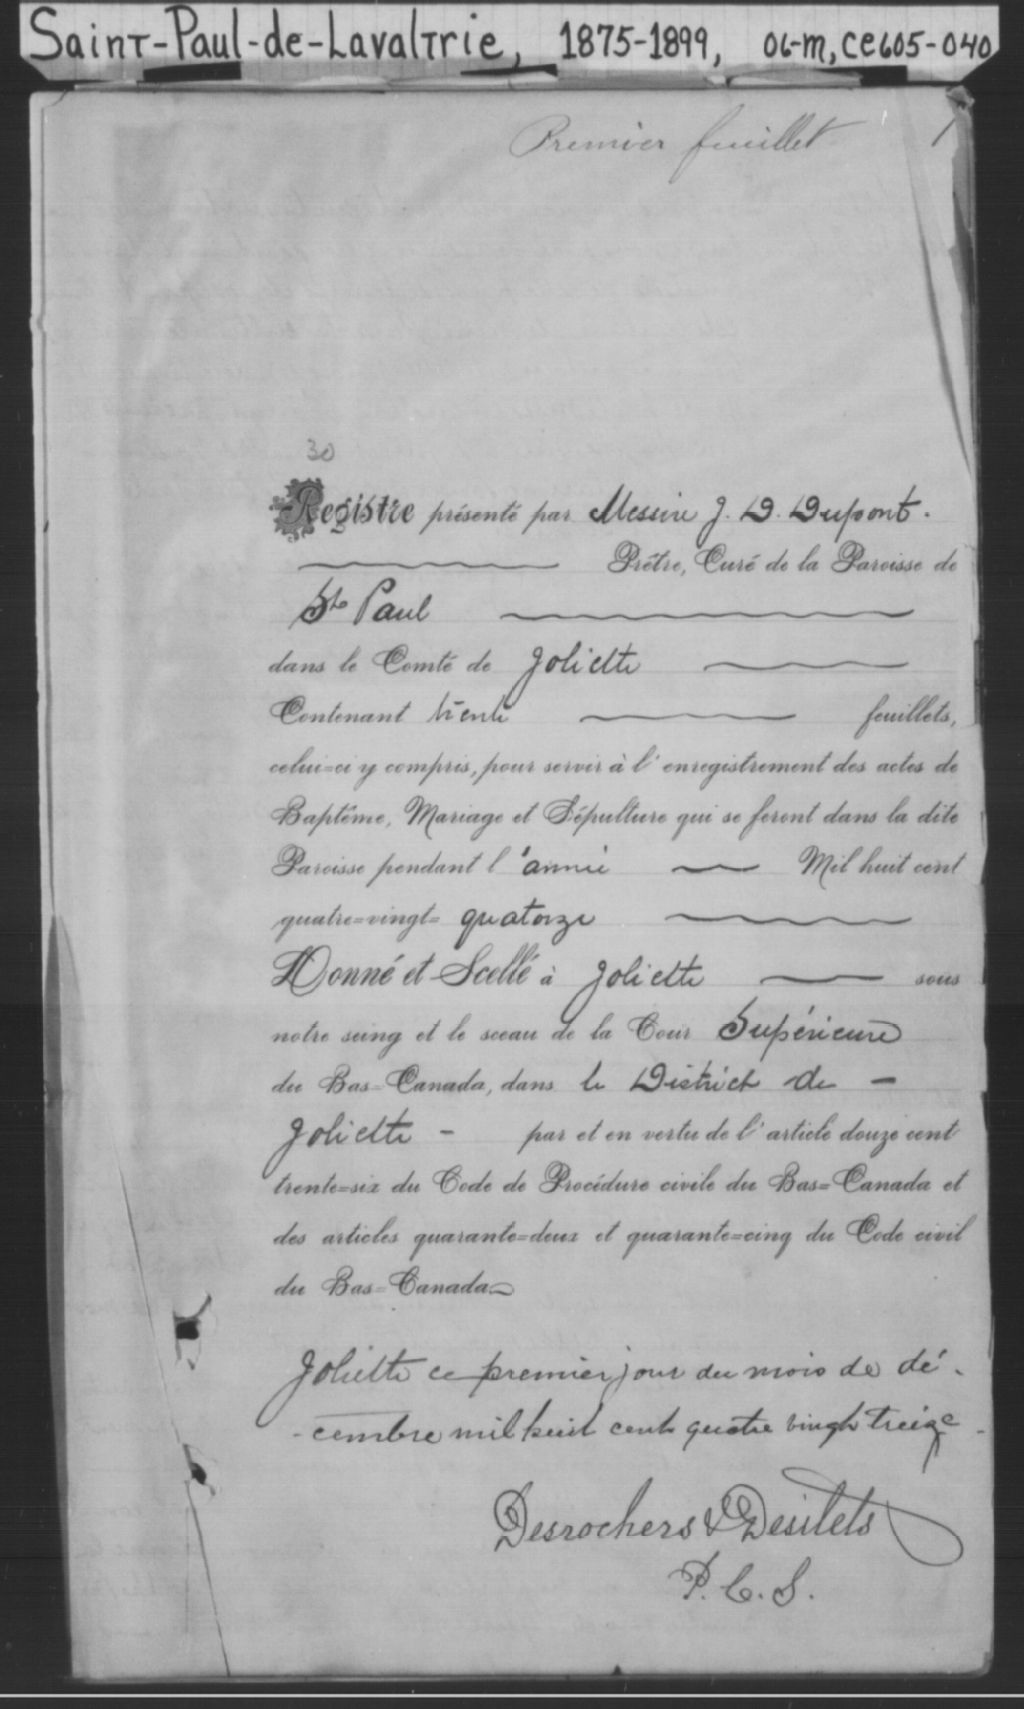 Saint-Paul-de-Lavaltrie, 1875-1899, 06-M, CE605-040
Premier feuillet 1
30
Registre présenté par Messire J. D. Dupont.
Prêtre, Curé de la Paroisse de
St Paul
dans le Comté de Joliette
Contenant trente feuillets,
celui=ci y compris, pour servir à l'enregistrement des actes de
Baptême, Mariage et Sépulture qui se feront dans la dite
Paroisse pendant l'année Mil huit cent
quatre=vingt= quatorze
Donné et Scellé à Joliette sous
notre seing et le sceau de la Cour Supérieure
du Bas=Canada, dans le District de -
Joliette - par et en vertu de l'article douze cent
trente=six du Code de Procédure civile du Bas=Canada et
des articles quarante=deux et quarante=cinq du Code civil
du Bas=Canada
Joliette ce premier jour du mois de dé-
-cembre mil huit cent quatre vingt treize
Desrochers & Desilets
P. C. S.